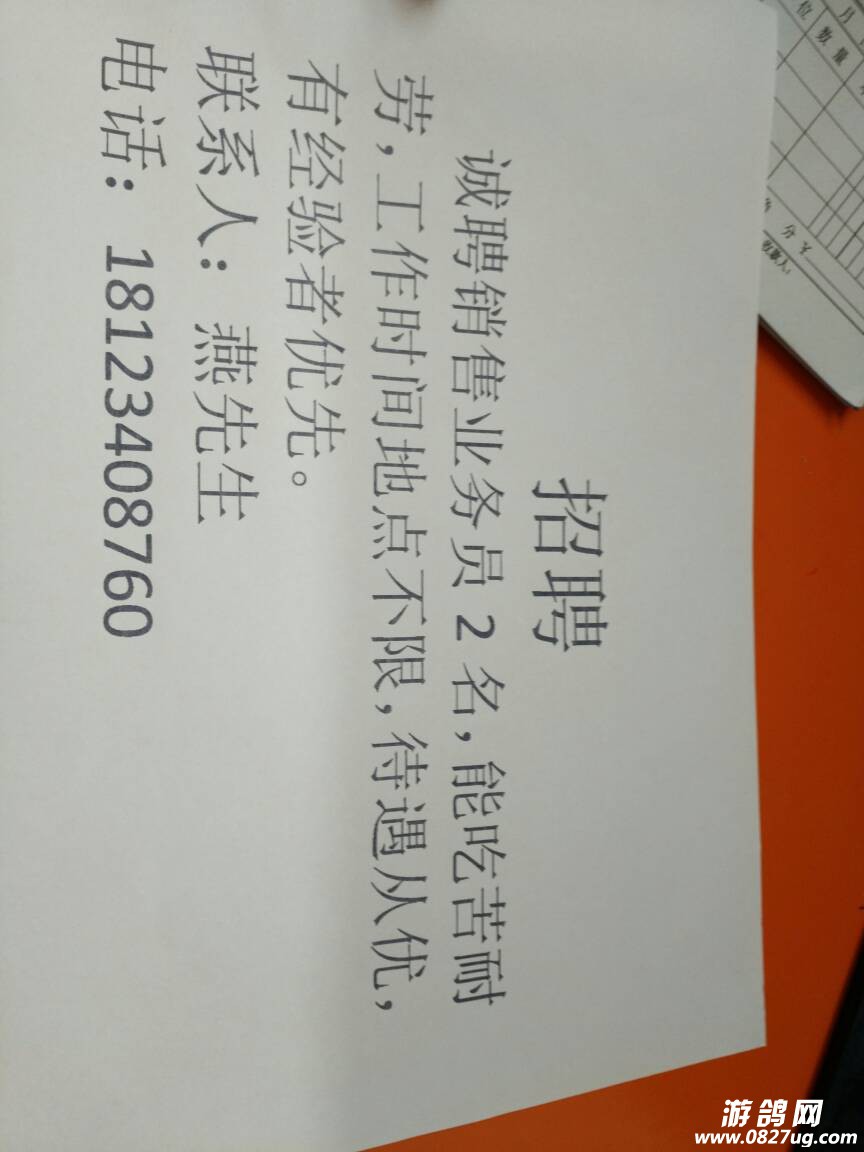 招聘
诚聘销售业务员2名，能吃苦耐
劳，工作时间地点不限，待遇从优，
有经验者优先。
联系人：燕先生
电话：18123408760
月
位 数量
分
游鸽网
www.0827ug.com